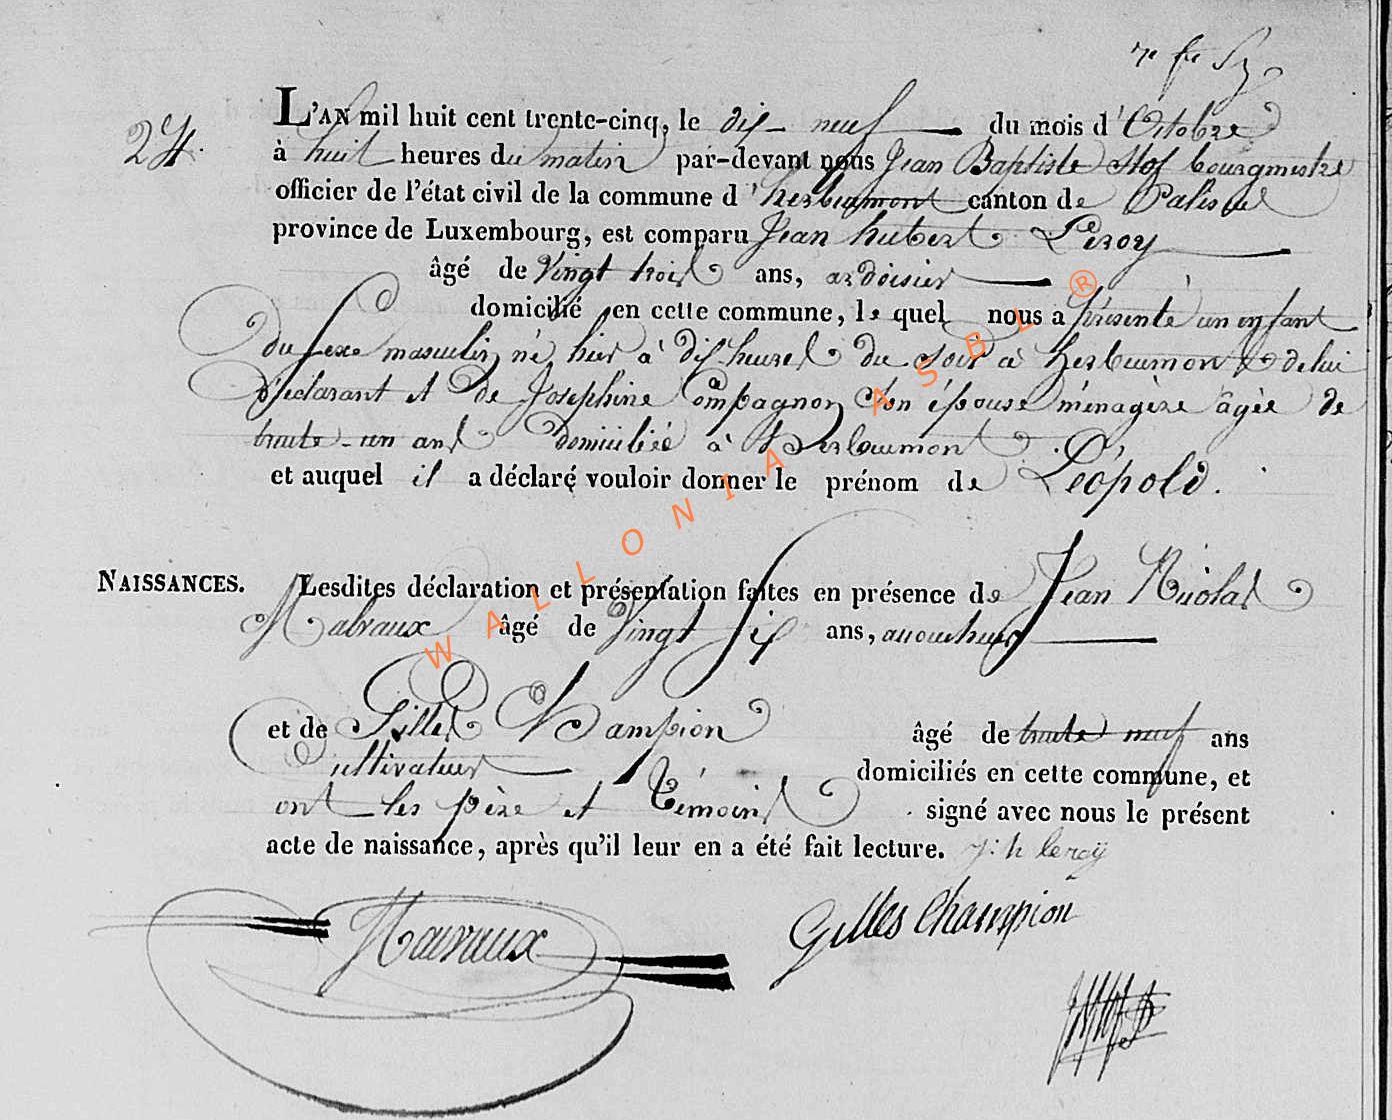 24.
L'AN mil huit cent trente-cinq, le dix neuf du mois d'Octobre
à huit heures du matin par-devant nous Jean Baptiste Stof bourgmestre
officier de l'état civil de la commune d'herbeumont canton de Paliseul
province de Luxembourg, est comparu Jean hubert Leroy
âgé de Vingt trois ans, ardoisier
domicilié en cette commune, le quel nous a présenté un enfant
du sexe masculin né hier à dix heures du soir à herbeumont de lui
déclarant et de Joséphine Compagnon son épouse ménagère âgée de
trente-un ans domiciliée à Herbeumont
et auquel il a déclaré vouloir donner le prénom de Léopold.
NAISSANCES. Lesdites déclaration et présentation faites en présence de Jean Nicolas
Malvaux âgé de Vingt six ans,
et de Gilles Champion âgé de trente neuf ans
Cultivateur domiciliés en cette commune, et
ont les père et Témoins signé avec nous le présent
acte de naissance, après qu'il leur en a été fait lecture. j: h leroÿ
Malvaux
Gilles Champion
WALLONIA ASBL ®